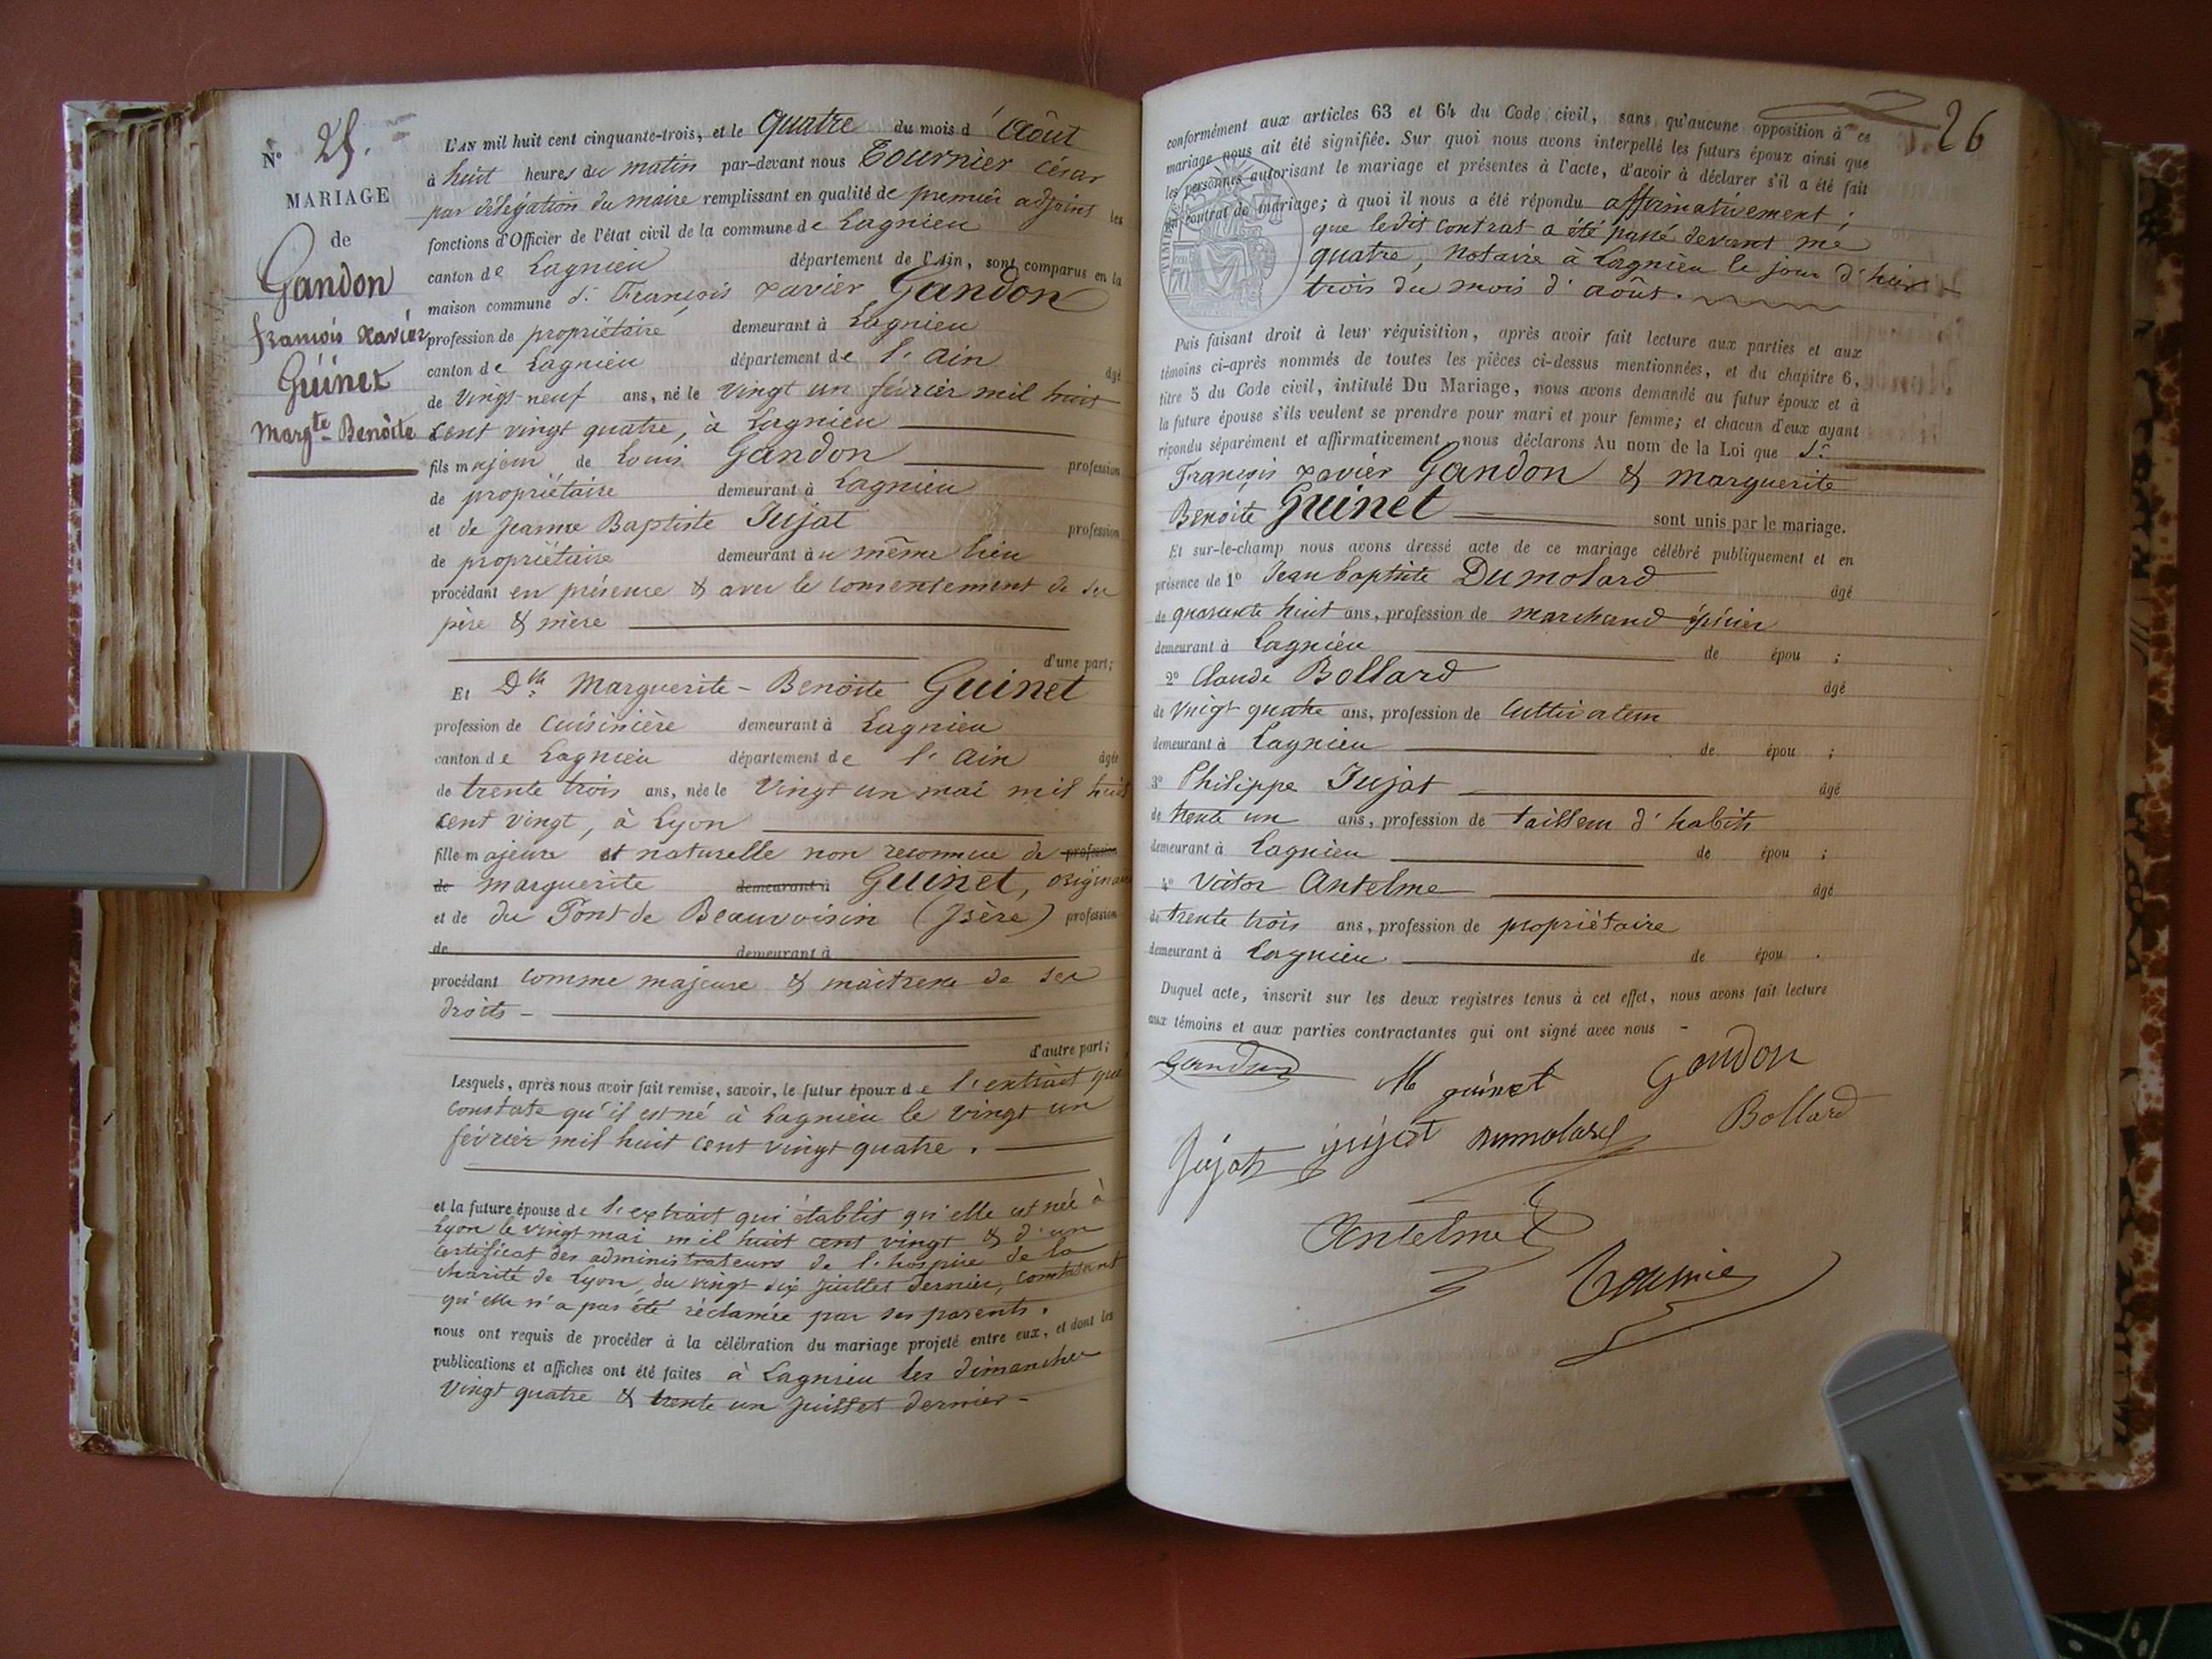 N° 25.
MARIAGE
de
Gandon
françois Xavier
Guinet
Margte Benoite
L'AN mil huit cent cinquante-trois, et le quatre du mois d'Août
à huit heures du matin par-devant nous Tournier César
par délégation du maire remplissant en qualité de premier adjoint les
fonctions d'Officier de l'état civil de la commune de Lagnieu
canton de Lagnieu département de l'Ain, sont comparus en la
maison commune Sr François Xavier Gandon
profession de propriétaire demeurant à Lagnieu
canton de Lagnieu département de l'Ain âgé
de vingt-neuf ans, né le vingt un février mil huit
cent vingt quatre, à Lagnieu
fils majeur de Louis Gandon profession
de propriétaire demeurant à Lagnieu
et de Jeanne Baptiste Jujat profession
de propriétaire demeurant au même lieu
procédant en présence & avec le consentement de ses
père & mère
d'une part;
Et Dlle Marguerite-Benoite Guinet
profession de Cuisinière demeurant à Lagnieu
canton de Lagnieu département de l'Ain âgée
de trente trois ans, née le Vingt un mai mil huit
cent vingt, à Lyon
fille majeure et naturelle non reconnue de profession
de marguerite demeurant à Guinet, originaire
et de du Pont de Beauvoisin (Isère) profession
de demeurant à
procédant comme majeure & maitresse de ses
droits -
d'autre part;
Lesquels, après nous avoir fait remise, savoir, le futur époux de l'extrait qui
constate qu'il est né à Lagnieu le vingt un
février mil huit cent vingt quatre.
et la future épouse de l'extrait qui établit qu'elle est née à
Lyon le vingt mai mil huit cent vingt & d'un
certificat des administrateurs de l'hospice de la
charité de Lyon, du vingt six juillet dernier, constatant
qu'elle n'a pas été réclamée par ses parents.
nous ont requis de procéder à la célébration du mariage projeté entre eux, et dont les
publications et affiches ont été faites à Lagnieu les dimanches
vingt quatre & trente un juillet dernier -
26
conformément aux articles 63 et 64 du Code civil, sans qu'aucune opposition à ce
mariage nous ait été signifiée. Sur quoi nous avons interpellé les futurs époux ainsi que
les personnes autorisant le mariage et présentes à l'acte, d'avoir à déclarer s'il a été fait
un contrat de mariage; à quoi il nous a été répondu affirmativement;
que ledit contrat a été passé devant me
quatre, Notaire à Lagnieu le jour d'hier
trois du mois d'août.
Puis faisant droit à leur réquisition, après avoir fait lecture aux parties et aux
témoins ci-après nommés de toutes les pièces ci-dessus mentionnées, et du chapitre 6,
titre 5 du Code civil, intitulé Du Mariage, nous avons demandé au futur époux et à
la future épouse s'ils veulent se prendre pour mari et pour femme; et chacun d'eux ayant
répondu séparément et affirmativement, nous déclarons Au nom de la Loi que Sr
François Xavier Gandon & marguerite
Benoite Guinet sont unis par le mariage.
Et sur-le-champ nous avons dressé acte de ce mariage célébré publiquement et en
présence de 1° Jean baptiste Dumolard âgé
de quarante huit ans, profession de marchand épicier
demeurant à Lagnieu de épou ;
2° Claude Bollard âgé
de vingt quatre ans, profession de Cultivateur
demeurant à Lagnieu de épou ;
3° Philippe Jujat âgé
de trente un ans, profession de tailleur d'habits
demeurant à Lagnieu de épou ;
4° Victor Antelme âgé
de trente trois ans, profession de propriétaire
demeurant à Lagnieu de épou .
Duquel acte, inscrit sur les deux registres tenus à cet effet, nous avons fait lecture
aux témoins et aux parties contractantes qui ont signé avec nous -
Gandon M guinet Gandon
Jujat jujat Dumolard Bollard
Antelme
Tournier